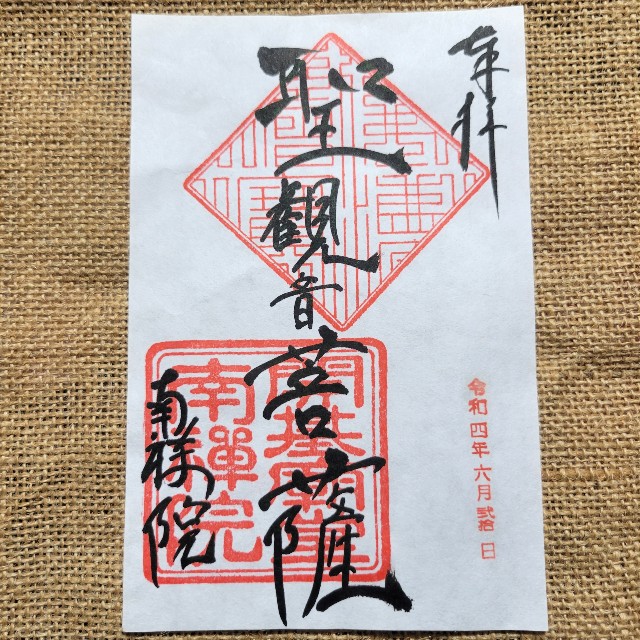 奉拝
令和四年六月弐拾日
聖観音菩薩
南禅院
開基霊場
南禅院